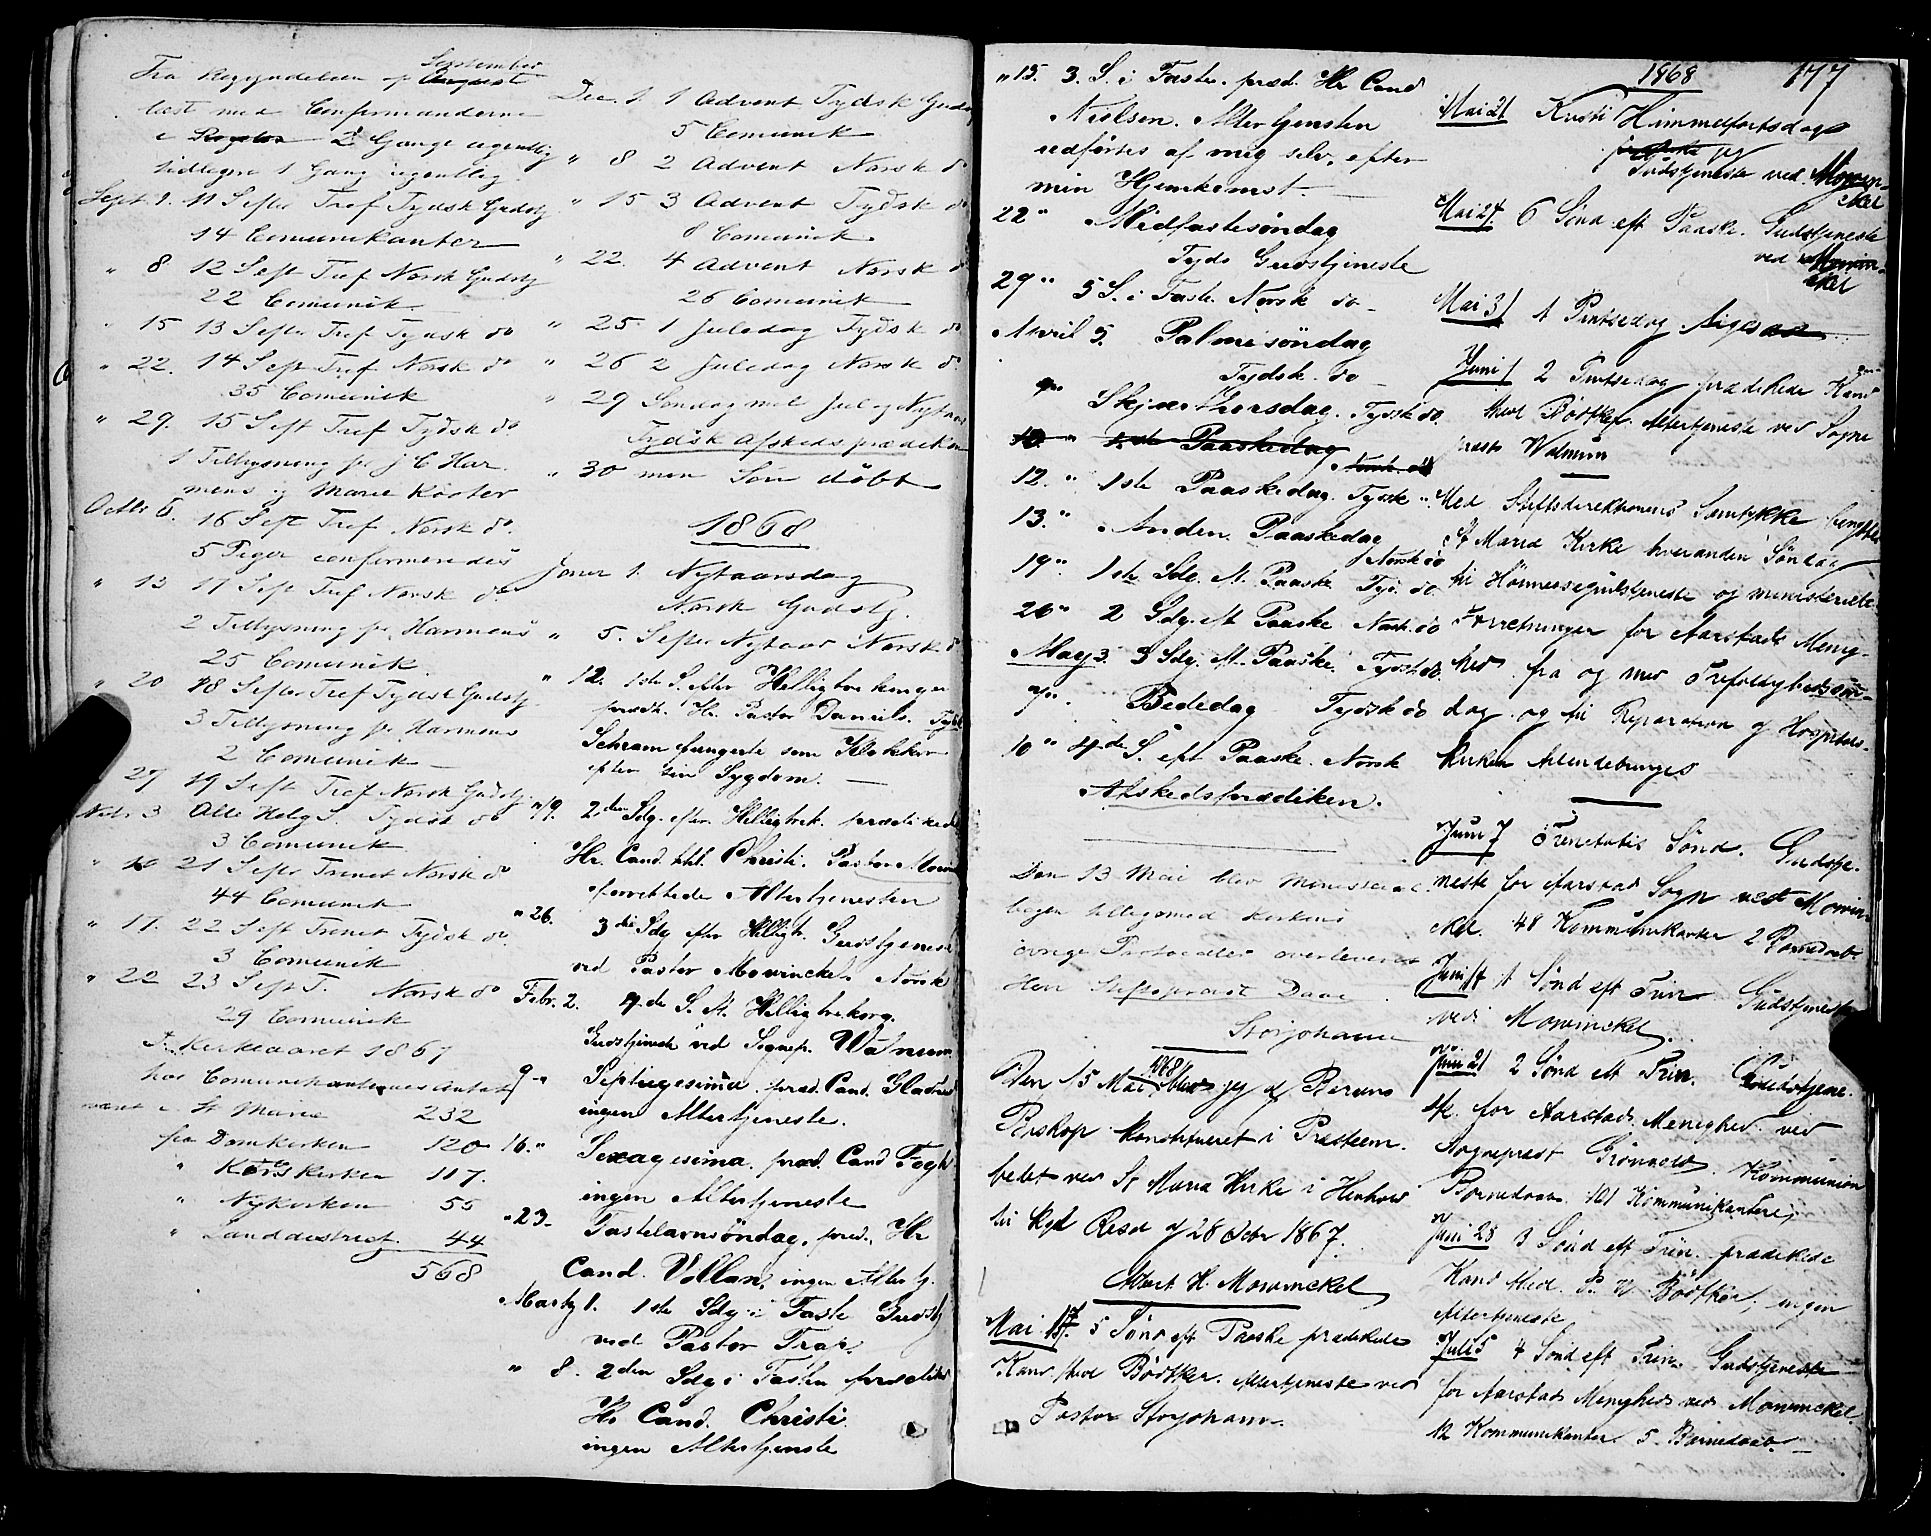 Fra Begyndelsen af August September
læst med Confirmanderne
2 Gange ugentlig
tidligere 1 Gang ugentlig.
Sept 1. 11 S efter Tref Tydsk Gudstj
14 Comunikanter
" 8 12 S eft Tref Norsk Gudstj
22 Comunik
" 15 13 S efter Tref Tydsk do
" 22. 14 S eft Tref Norsk do
35 Comunik
" 29. 15 S eft Tref Tydsk do
1 Tillysning for J C Har
mens og Marie Köster
Octbr 6. 16 S eft Tref Norsk do
5 Piger confirmeredes
" 13 17 S eft Tref Norsk do
2 Tillysning for Harmens
25 Comunik
" 20 18 S efter Tref Tydsk Gudstj.
3 Tillysning for Harmens
2 Comunik
27 19 S eft Tref Norsk Gudstj.
Nvbr 3 Alle Helg S. Tydsk do
3 Comunik
" 10 21 S efter Trenet Norsk do
44 Comunik
" 17. 22 S eft Trenet Tydsk do
3 Comunik
" 22 23 S eft T. Norsk do
29 Comunik
I Kirkeaaret 1867
har Comunikanternes Antal
været i St Marie 232
fra Domkirken 120
" Korskirken 117.
" Nykirken 55
" Landdistrict 44
568
Dec. 1. 1 Advent Tydsk Guds
5 Comunik
" 8 2 Advent Norsk do
" 15 3 Advent Tydsk do
8 Comunik
" 22. 4 Advent Norsk do
26 Comunik
" 25. 1 Juledag Tydsk do
" 26 2 Juledag Norsk do
" 29 Søndag mel Jul og Nytaar
Tydsk Afskedsprædiken
" 30 min Søn døbt
1868
Janr 1. Nytaarsdag
Norsk Gudstj.
" 5. S efter Nytaar Norsk do
" 12. 1ste S. efter Helligtrekonger
prædk. Hr. Pastor Daniels. Tydsk
Schram fungerte som Klokker
efter sin Sygdom.
" 19. 2den Sdg. efter Helligtrek. prædikede
Hr. Cand. thl. Christi. Pastor Mowin
forrettede Altertjenesten
" 26. 3die Sdg efter Helligtr. Gudstjeneste
ved Pastor Mowinckel. Norsk
Febr. 2. 4de S. ft. Helligtrekong.
Gudstjeneste ved Sognep. Walnum
9 " Septuagesima. præd. Cand. Gladtved
ingen Altertjeneste.
16. " Sexagesima. præd. Cand Fogh
ingen Altertjeneste
" 23 Fastelavnsöndag, præd. Hr
Cand. Vollan, ingen Altertj.
Marty 1. 1ste Sdg i Faste Gudstj
ved Pastor Trap.
" 8. 2den Sdg i Fasten prædiked
Hr Cand. Christi.
ingen Altertjenste
" 15. 3. S. i Faste. præd. Hr Cand
Nielsen. Altertjensten
udførtes af mig selv, efter
min Hjemkomst.
22 " Midfastesöndag
Tyds Gudstjeneste
29 " 5 S. i Faste. Norsk do
April 5. Palmesöndag
Tydsk do
9 " Skjærthorsdag. Tydsk do.
10. " 1ste Paaskedag Norsk do
12. " 1ste Paaskedag. Tydsk "
13. " Anden Paaskedag
Norsk do
19 " 1ste Sdg. ft. Paaske Tyd. do
26 " 2 Sdg. eft Paaske Norsk do
May 3. 3 Sdg. ft. Paaske. Tydsk do.
8 " Bededag Tydsk do
10 " 4de S. eft Paaske. Norsk
Afskedsprædiken.
Den 13 Mai blev Ministerial
bogen tilligemed Kirkens
øvrige Protocoller overleveret
Herr Stiftsprovst Daae
Storjohann
Den 15 Mai 1868 blev jeg af Bergens
Biskop konstitueret i Præsteem
bedet ved St Maria Kirke i Henhold
til kgl Resol af 26 Octbr 1867.
Albert H. Mowinckel
Mai 17. 5 Sönd eft Paaske prædikede
Kand theol Bödtker. Altertjeneste ved
Pastor Storjohann.
1868 177
Mai 21 Kristi Himmelfartsdag
prædikede jeg
Gudstjeneste ved Mowin-
ckel
Mai 24. 6 Sönd. eft Paaske. Gudstjeneste
ved Mowin-
ckel
Mai 31 1 Pintsedag ligesaa
Juni 1 2 Pintsedag prædikede Kand
theol Bödtker. Altertjeneste ved Sogne
præst Walnum
Med Stiftsdirektionens Samtykke benyttes
St Maria Kirke hveranden Söndag
til Höimessegudstjeneste og ministerielle
Forretninger for Aarstads Menig-
hed fra og med Trefoldighedssön-
dag og til Reparation af Hospitals-
kirken tilendebringes
Juni 7 Trinitatis Sönd. Gudstje-
neste for Aarstad Sogn ved Mowin-
ckel. 48 Kommunikanter 2 Barnedaab
Juni 14 1 Sönd eft Trin Gudstjeneste
ved Mowinckel.
Juni 21 2 Sönd eft Trin. Gudstjene-
ste for Aarstads Menighed ved
Sogneprest Grönvold. Kommunion
Barnedaab. 101 Kommunikantere,
Juni 28 3 Sönd eft Trin. prædikede
Kand theol. P. W Bödtker, ingen
Altertjeneste
Juli 5 4 Sönd eft Trin. Gudstjeneste
for Aarstads Menighed ved Mowinckel
12 Kommunikanter. 5 Barnedaab